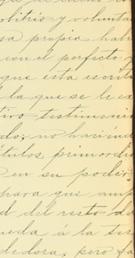 olitrio y voluntad
sa propia hab
con el perfecto
que esta escrit
la que se le ex
tivo testimoni
do, no haviénd
títulos primordi
en su poder
para que am
d del resto d
ueda á la tie
dedora, pero